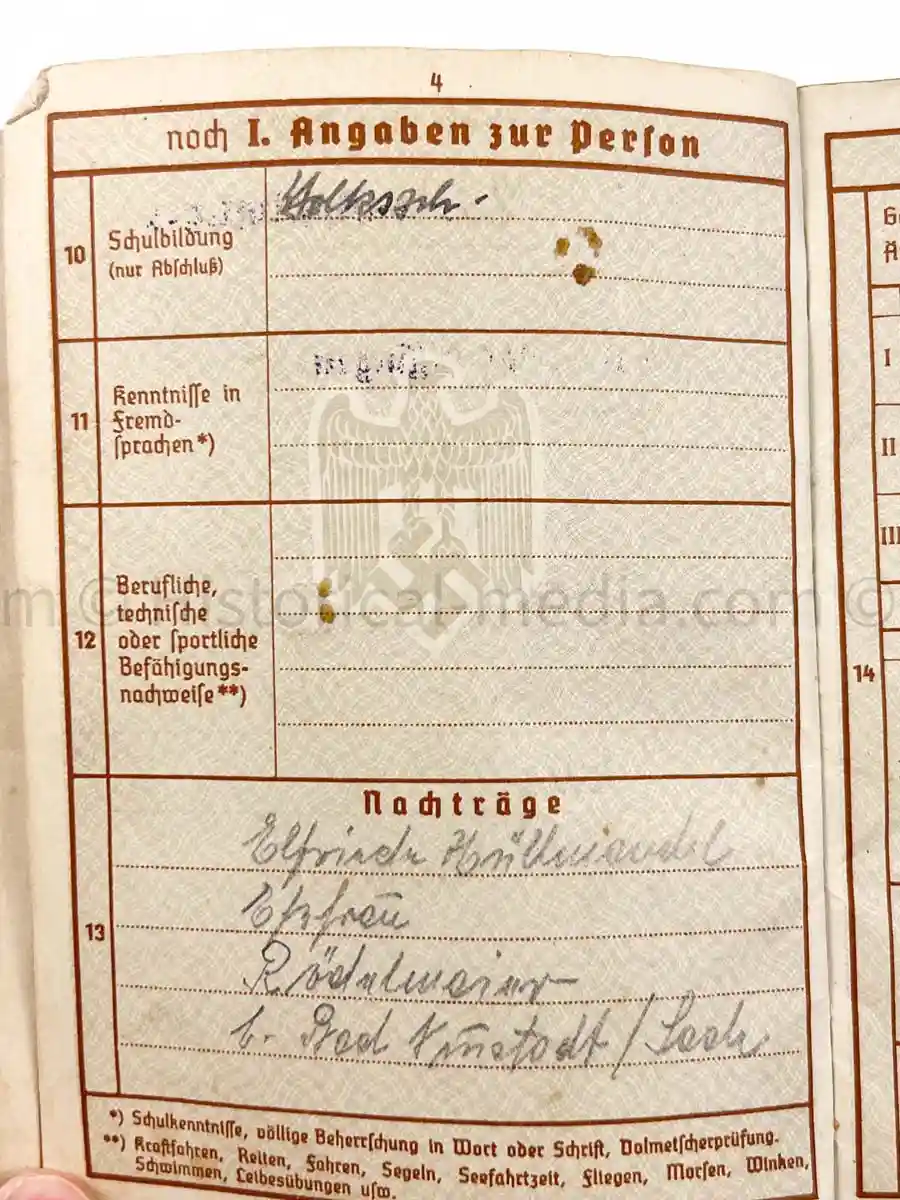 4
noch I. Angaben zur Person
10
Schulbildung
(nur Abschluß)
Volkssch.
11
Kenntnisse in
Fremd-
sprachen*)
12
Berufliche,
technische
oder sportliche
Befähigungs-
nachweise**)
13
Nachträge
Elfriede Hüllmandel
Ehefrau
Rödelmaier
b. Bad Neustadt / Saale
*) Schulkenntnisse, völlige Beherrschung in Wort oder Schrift, Dolmetscherprüfung.
**) Kraftfahren, Reiten, Fahren, Segeln, Seefahrtzeit, Fliegen, Morsen, Winken,
Schwimmen, Leibesübungen usw.
I
II
III
14
m © historical-media.com ©